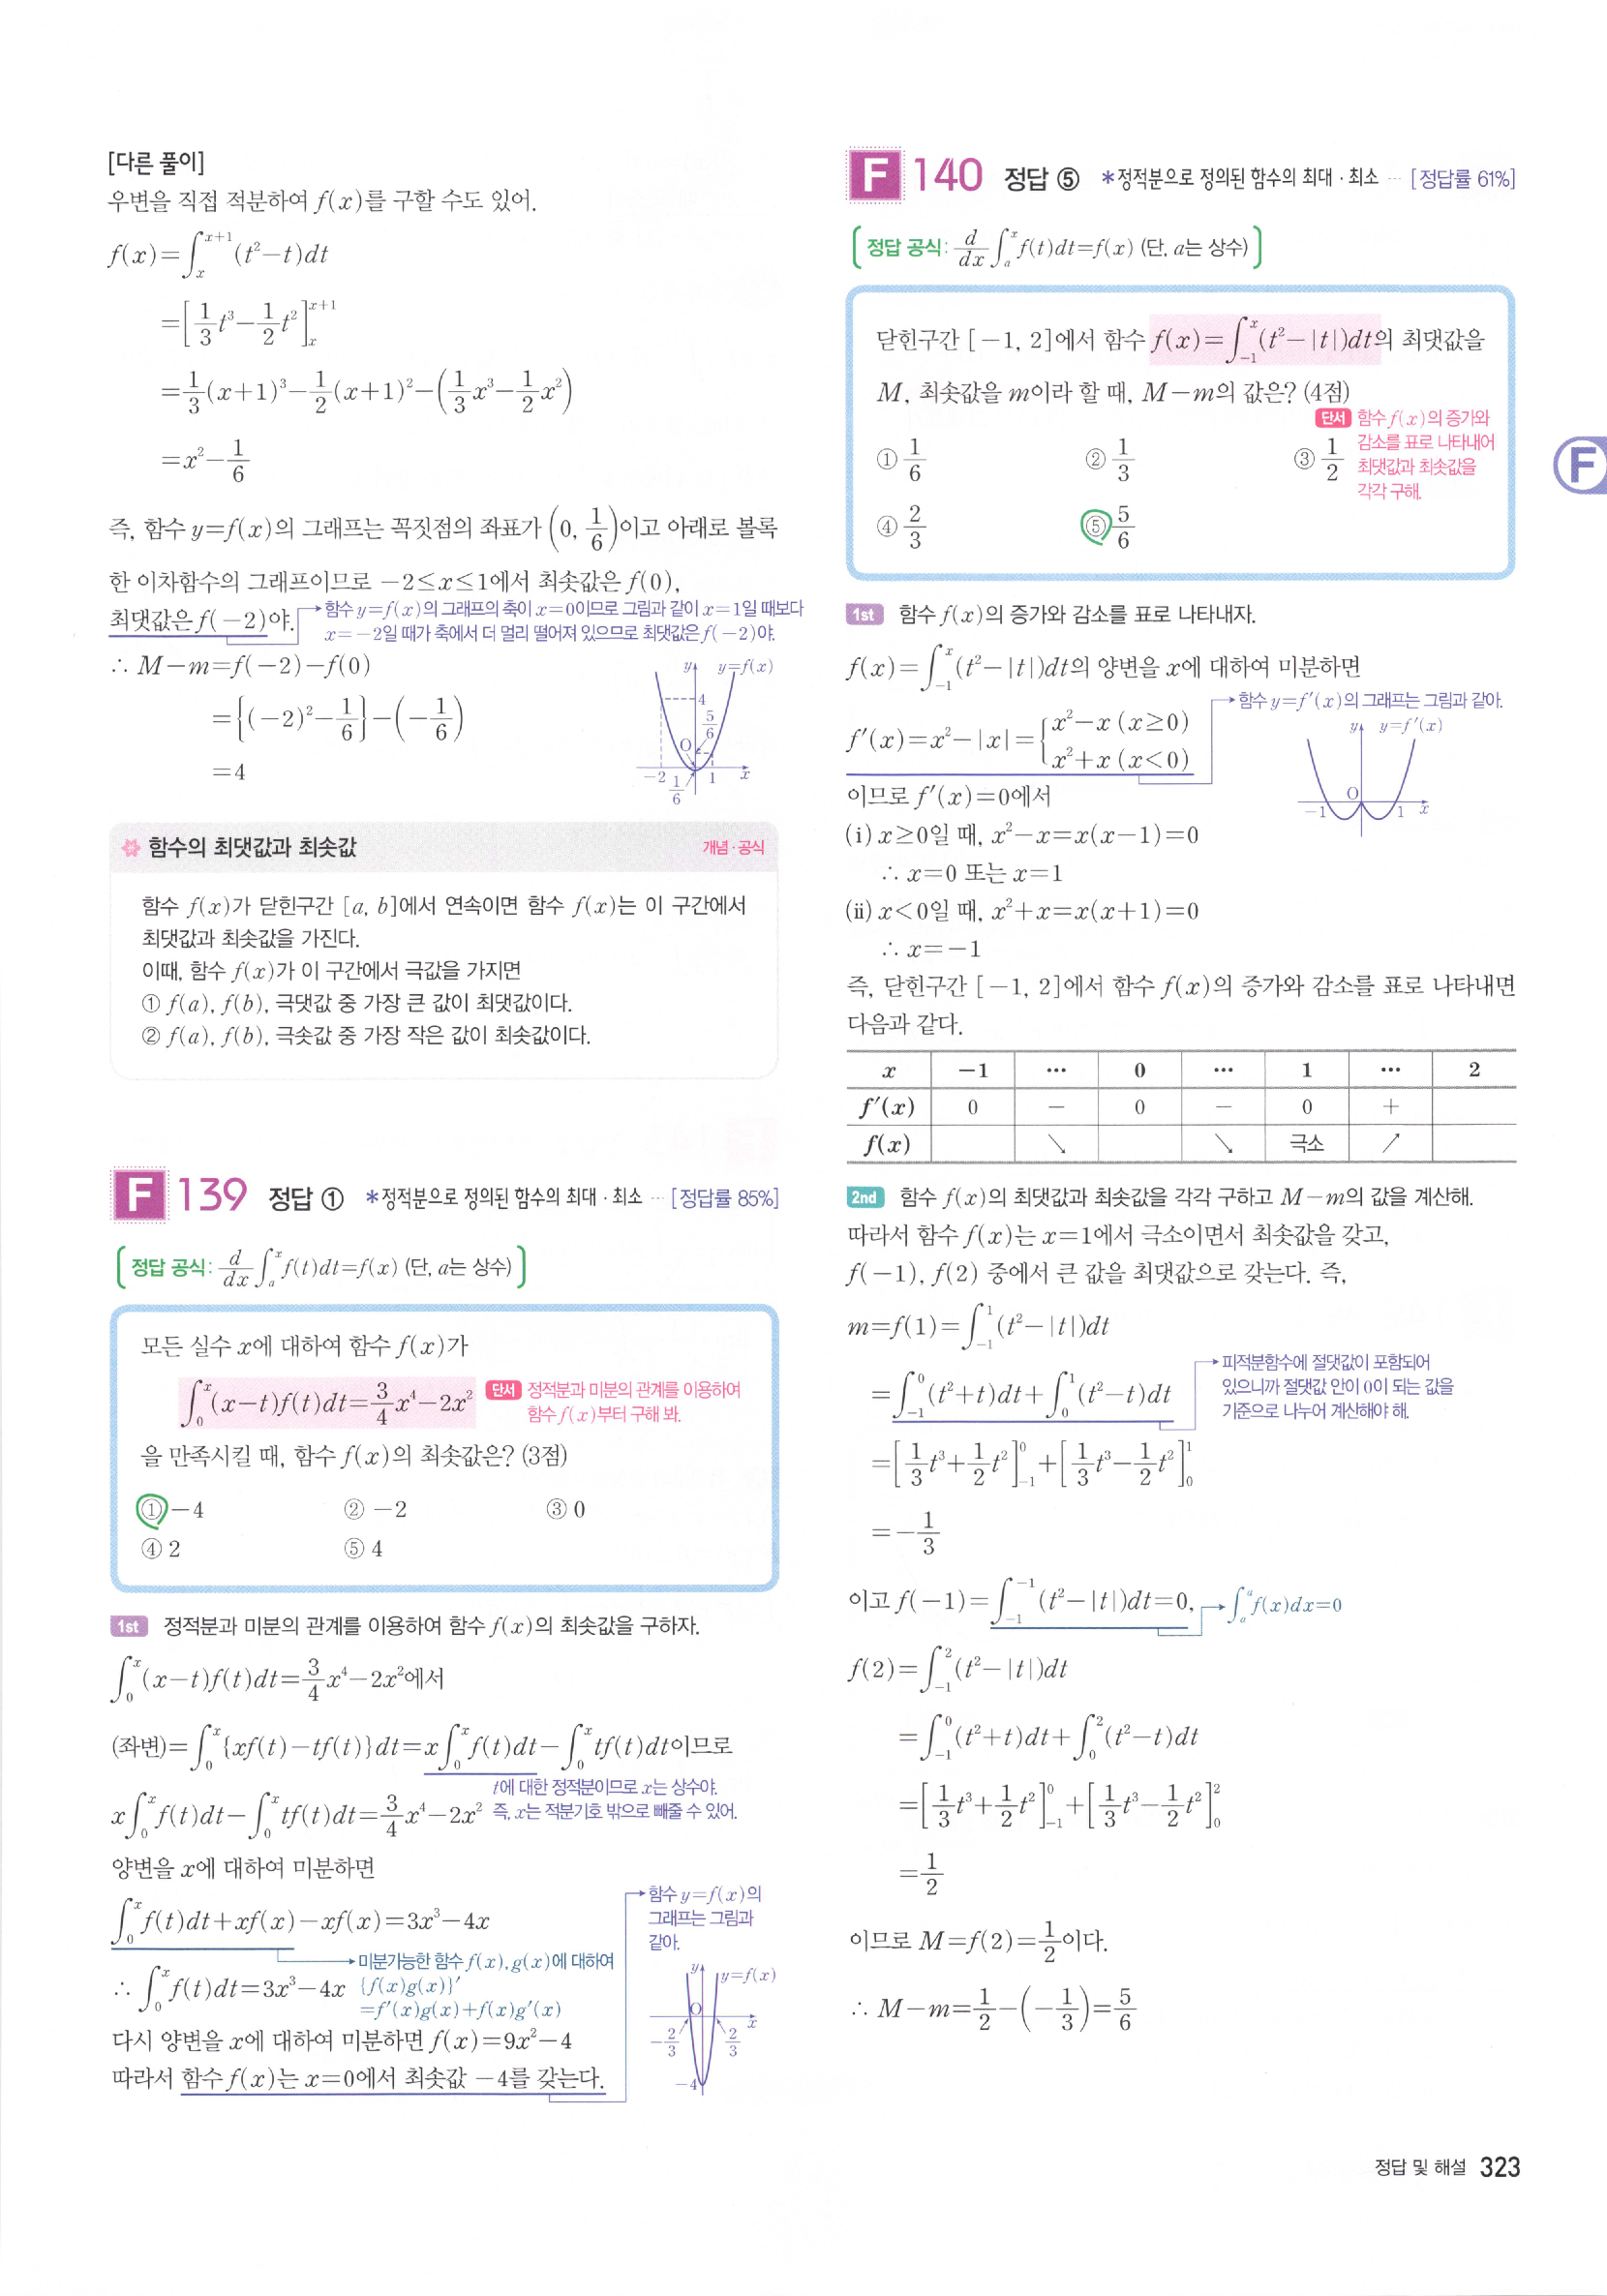 [다른 풀이]
우변을 직접 적분하여 f(x)를 구할 수도 있어.
f(x)=∫_x^{x+1}(t²-t)dt
=[1/3 t³-1/2 t²]_x^{x+1}
=1/3(x+1)³-1/2(x+1)²-(1/3 x³-1/2 x²)
=x²-1/6
즉, 함수 y=f(x)의 그래프는 꼭짓점의 좌표가 (0, 1/6)이고 아래로 볼록
한 이차함수의 그래프이므로 -2≤x≤1에서 최솟값은 f(0),
최댓값은 f(-2)야.
함수 y=f(x)의 그래프의 축이 x=0이므로 그림과 같이 x=1일 때보다
x=-2일 때가 축에서 더 멀리 떨어져 있으므로 최댓값은 f(-2)야.
∴ M-m=f(-2)-f(0)
={(-2)²-1/6}-(-1/6)
=4
y y=f(x)
4
5/6
O
-2 1/6 1 x
함수의 최댓값과 최솟값 개념·공식
함수 f(x)가 닫힌구간 [a, b]에서 연속이면 함수 f(x)는 이 구간에서
최댓값과 최솟값을 가진다.
이때, 함수 f(x)가 이 구간에서 극값을 가지면
① f(a), f(b), 극댓값 중 가장 큰 값이 최댓값이다.
② f(a), f(b), 극솟값 중 가장 작은 값이 최솟값이다.
F 139 정답 ① *정적분으로 정의된 함수의 최대·최소 ··· [정답률 85%]
정답 공식: d/dx ∫_a^x f(t)dt=f(x) (단, a는 상수)
모든 실수 x에 대하여 함수 f(x)가
∫_0^x (x-t)f(t)dt=3/4 x⁴-2x²
단서 정적분과 미분의 관계를 이용하여
함수 f(x)부터 구해 봐.
을 만족시킬 때, 함수 f(x)의 최솟값은? (3점)
① -4 ② -2 ③ 0
④ 2 ⑤ 4
1st 정적분과 미분의 관계를 이용하여 함수 f(x)의 최솟값을 구하자.
∫_0^x (x-t)f(t)dt=3/4 x⁴-2x²에서
(좌변)=∫_0^x {xf(t)-tf(t)}dt=x∫_0^x f(t)dt-∫_0^x tf(t)dt이므로
t에 대한 정적분이므로 x는 상수야.
즉, x는 적분기호 밖으로 빼줄 수 있어.
x∫_0^x f(t)dt-∫_0^x tf(t)dt=3/4 x⁴-2x²
양변을 x에 대하여 미분하면
∫_0^x f(t)dt+xf(x)-xf(x)=3x³-4x
미분가능한 함수 f(x), g(x)에 대하여
{f(x)g(x)}′
=f′(x)g(x)+f(x)g′(x)
∴ ∫_0^x f(t)dt=3x³-4x
다시 양변을 x에 대하여 미분하면 f(x)=9x²-4
따라서 함수 f(x)는 x=0에서 최솟값 -4를 갖는다.
함수 y=f(x)의
그래프는 그림과
같아.
y y=f(x)
O x
-2/3 2/3
-4
F 140 정답 ⑤ *정적분으로 정의된 함수의 최대·최소 ··· [정답률 61%]
정답 공식: d/dx ∫_a^x f(t)dt=f(x) (단, a는 상수)
닫힌구간 [-1, 2]에서 함수 f(x)=∫_{-1}^x (t²-|t|)dt의 최댓값을
M, 최솟값을 m이라 할 때, M-m의 값은? (4점)
단서 함수 f(x)의 증가와
감소를 표로 나타내어
최댓값과 최솟값을
각각 구해.
① 1/6 ② 1/3 ③ 1/2
④ 2/3 ⑤ 5/6
1st 함수 f(x)의 증가와 감소를 표로 나타내자.
f(x)=∫_{-1}^x (t²-|t|)dt의 양변을 x에 대하여 미분하면
f′(x)=x²-|x|={x²-x (x≥0)
x²+x (x<0)
함수 y=f′(x)의 그래프는 그림과 같아.
y y=f′(x)
O
-1 1 x
이므로 f′(x)=0에서
(ⅰ) x≥0일 때, x²-x=x(x-1)=0
∴ x=0 또는 x=1
(ⅱ) x<0일 때, x²+x=x(x+1)=0
∴ x=-1
즉, 닫힌구간 [-1, 2]에서 함수 f(x)의 증가와 감소를 표로 나타내면
다음과 같다.
x -1 ··· 0 ··· 1 ··· 2
f′(x) 0 - 0 - 0 +
f(x) ↘ ↘ 극소 ↗
2nd 함수 f(x)의 최댓값과 최솟값을 각각 구하고 M-m의 값을 계산해.
따라서 함수 f(x)는 x=1에서 극소이면서 최솟값을 갖고,
f(-1), f(2) 중에서 큰 값을 최댓값으로 갖는다. 즉,
m=f(1)=∫_{-1}^1 (t²-|t|)dt
=∫_{-1}^0 (t²+t)dt+∫_0^1 (t²-t)dt
피적분함수에 절댓값이 포함되어
있으니까 절댓값 안이 0이 되는 값을
기준으로 나누어 계산해야 해.
=[1/3 t³+1/2 t²]_{-1}^0+[1/3 t³-1/2 t²]_0^1
=-1/3
이고 f(-1)=∫_{-1}^{-1} (t²-|t|)dt=0, ∫_a^a f(x)dx=0
f(2)=∫_{-1}^2 (t²-|t|)dt
=∫_{-1}^0 (t²+t)dt+∫_0^2 (t²-t)dt
=[1/3 t³+1/2 t²]_{-1}^0+[1/3 t³-1/2 t²]_0^2
=1/2
이므로 M=f(2)=1/2이다.
∴ M-m=1/2-(-1/3)=5/6
F
정답 및 해설 323